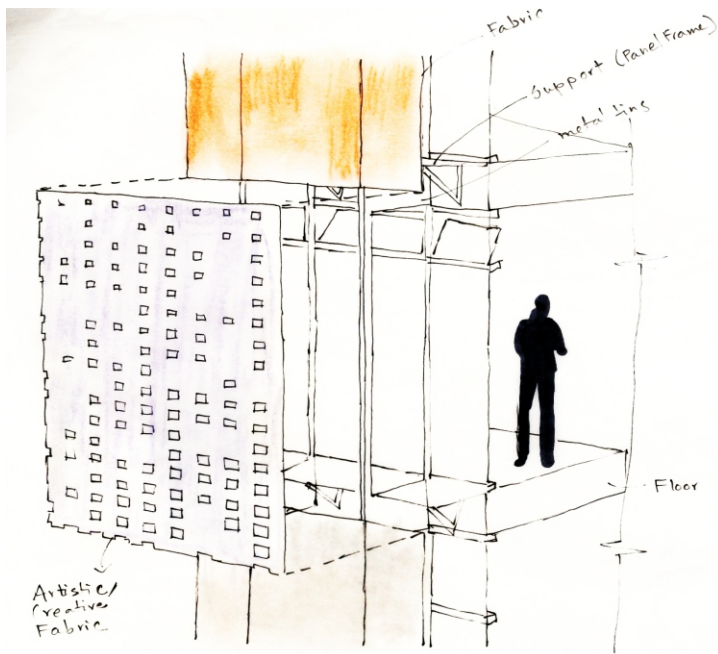 Fabric
Support (Panel Frame)
metal ling
Floor
Artistic/
Creative
Fabric